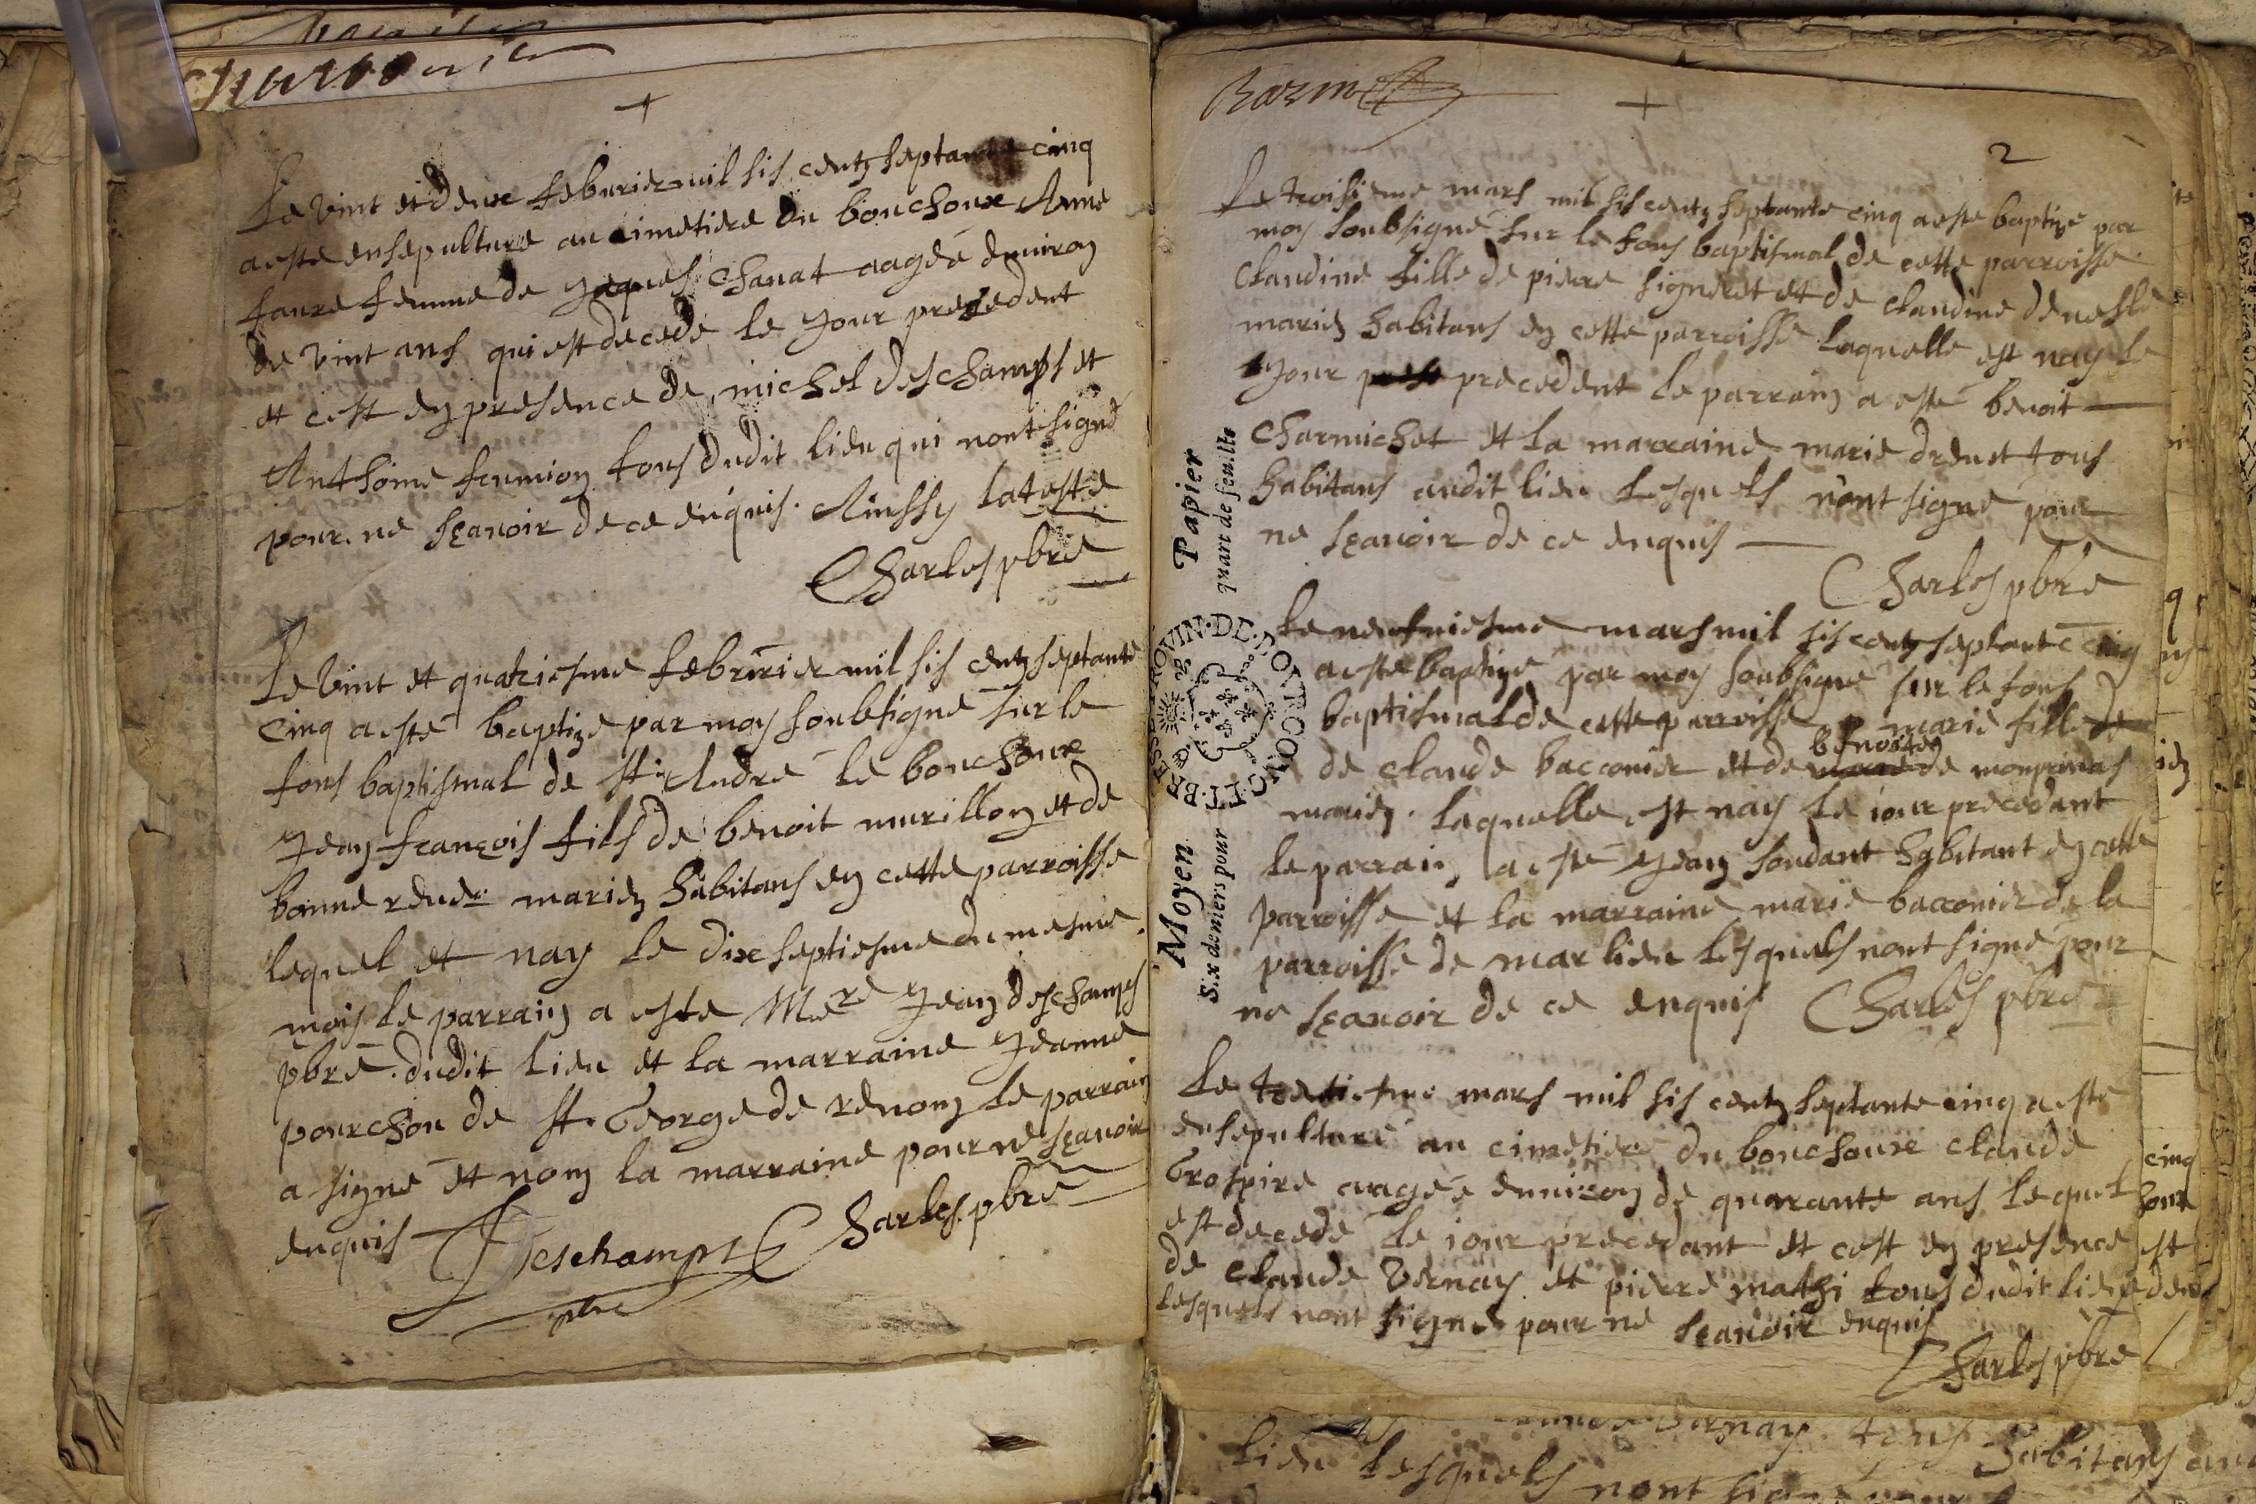 +
Le vint et deux febvrier mil sis centz septante cinq
a esté ensepulturé au cimetiere du bouchoux Anne
faure femme de Jaques Chanat aagée denviron
de vint ans qui est decedé le Jour precedent
et cest en presence de michel deschamps et
Anthoine feunion tous dudit lieu qui nont signé
pour ne sçavoir de ce enquis. Ainssy lateste
Charles pbre
Le vint et quatriesme febvrier mil sis centz septante
cinq a esté baptizé par moy soubsigné sur le
fons baptismal de st. André le bouchoux
Jean françois fils de benoit murillon et de
bonne render mariez habitans en cette parroisse
lequel et nay le dix septiesme du mesme
mois le parrain a este Mre Jean deschamps
pbre dudit lieu et la marraine Jeanne
pourchou de st. George de renon le parrain
a signé et non la marraine pour ne sçavoir
enquis
Deschamps Charles pbre
pbre
Bazin
+
2
Le troisieme mars mil sis centz septante cinq a este baptizé par
moy soubsigné sur le fons baptismal de cette parroisse
Claudine fille de piere signeret et de claudine denesle
mariez habitans en cette parroisse laquelle est nay le
Jour precedent le parrain a esté benoit
Charmichet et la marraine marie dreuet tous
habitans audit lieu lesquels n'ont signé pour
ne sçavoir de ce enquis
Charles pbre
Le neufviesme mars mil sis centz septante cinq
a esté baptizé par moy soubsigné sur le fons
baptismal de cette parroisse marie fille de
benoite
de claude bacconier et de de monprivas
mariez. laquelle est nay le iour precedant
le parrain a esté Jean soudant habitant en cette
parroisse et la marraine marie bacconier de la
parroisse de marlieu lesquels nont signé pour
ne sçavoir de ce enquis Charles pbre
Le mars mil sis centz septante cinq a esté
ensepulturé au cimetiere du bouchoux claude
Grospire aagée environ de quarante ans lequel
est decedé le iour precedant et cest en presence
de claude vernay et pierre mathi tous dudit lieu
lesquels nont signé pour ne sçavoir enquis
Charles pbre
Moyen Papier
Six deniers pour quart de feuille
vernay tous habitans
lieu lesquels nont signé